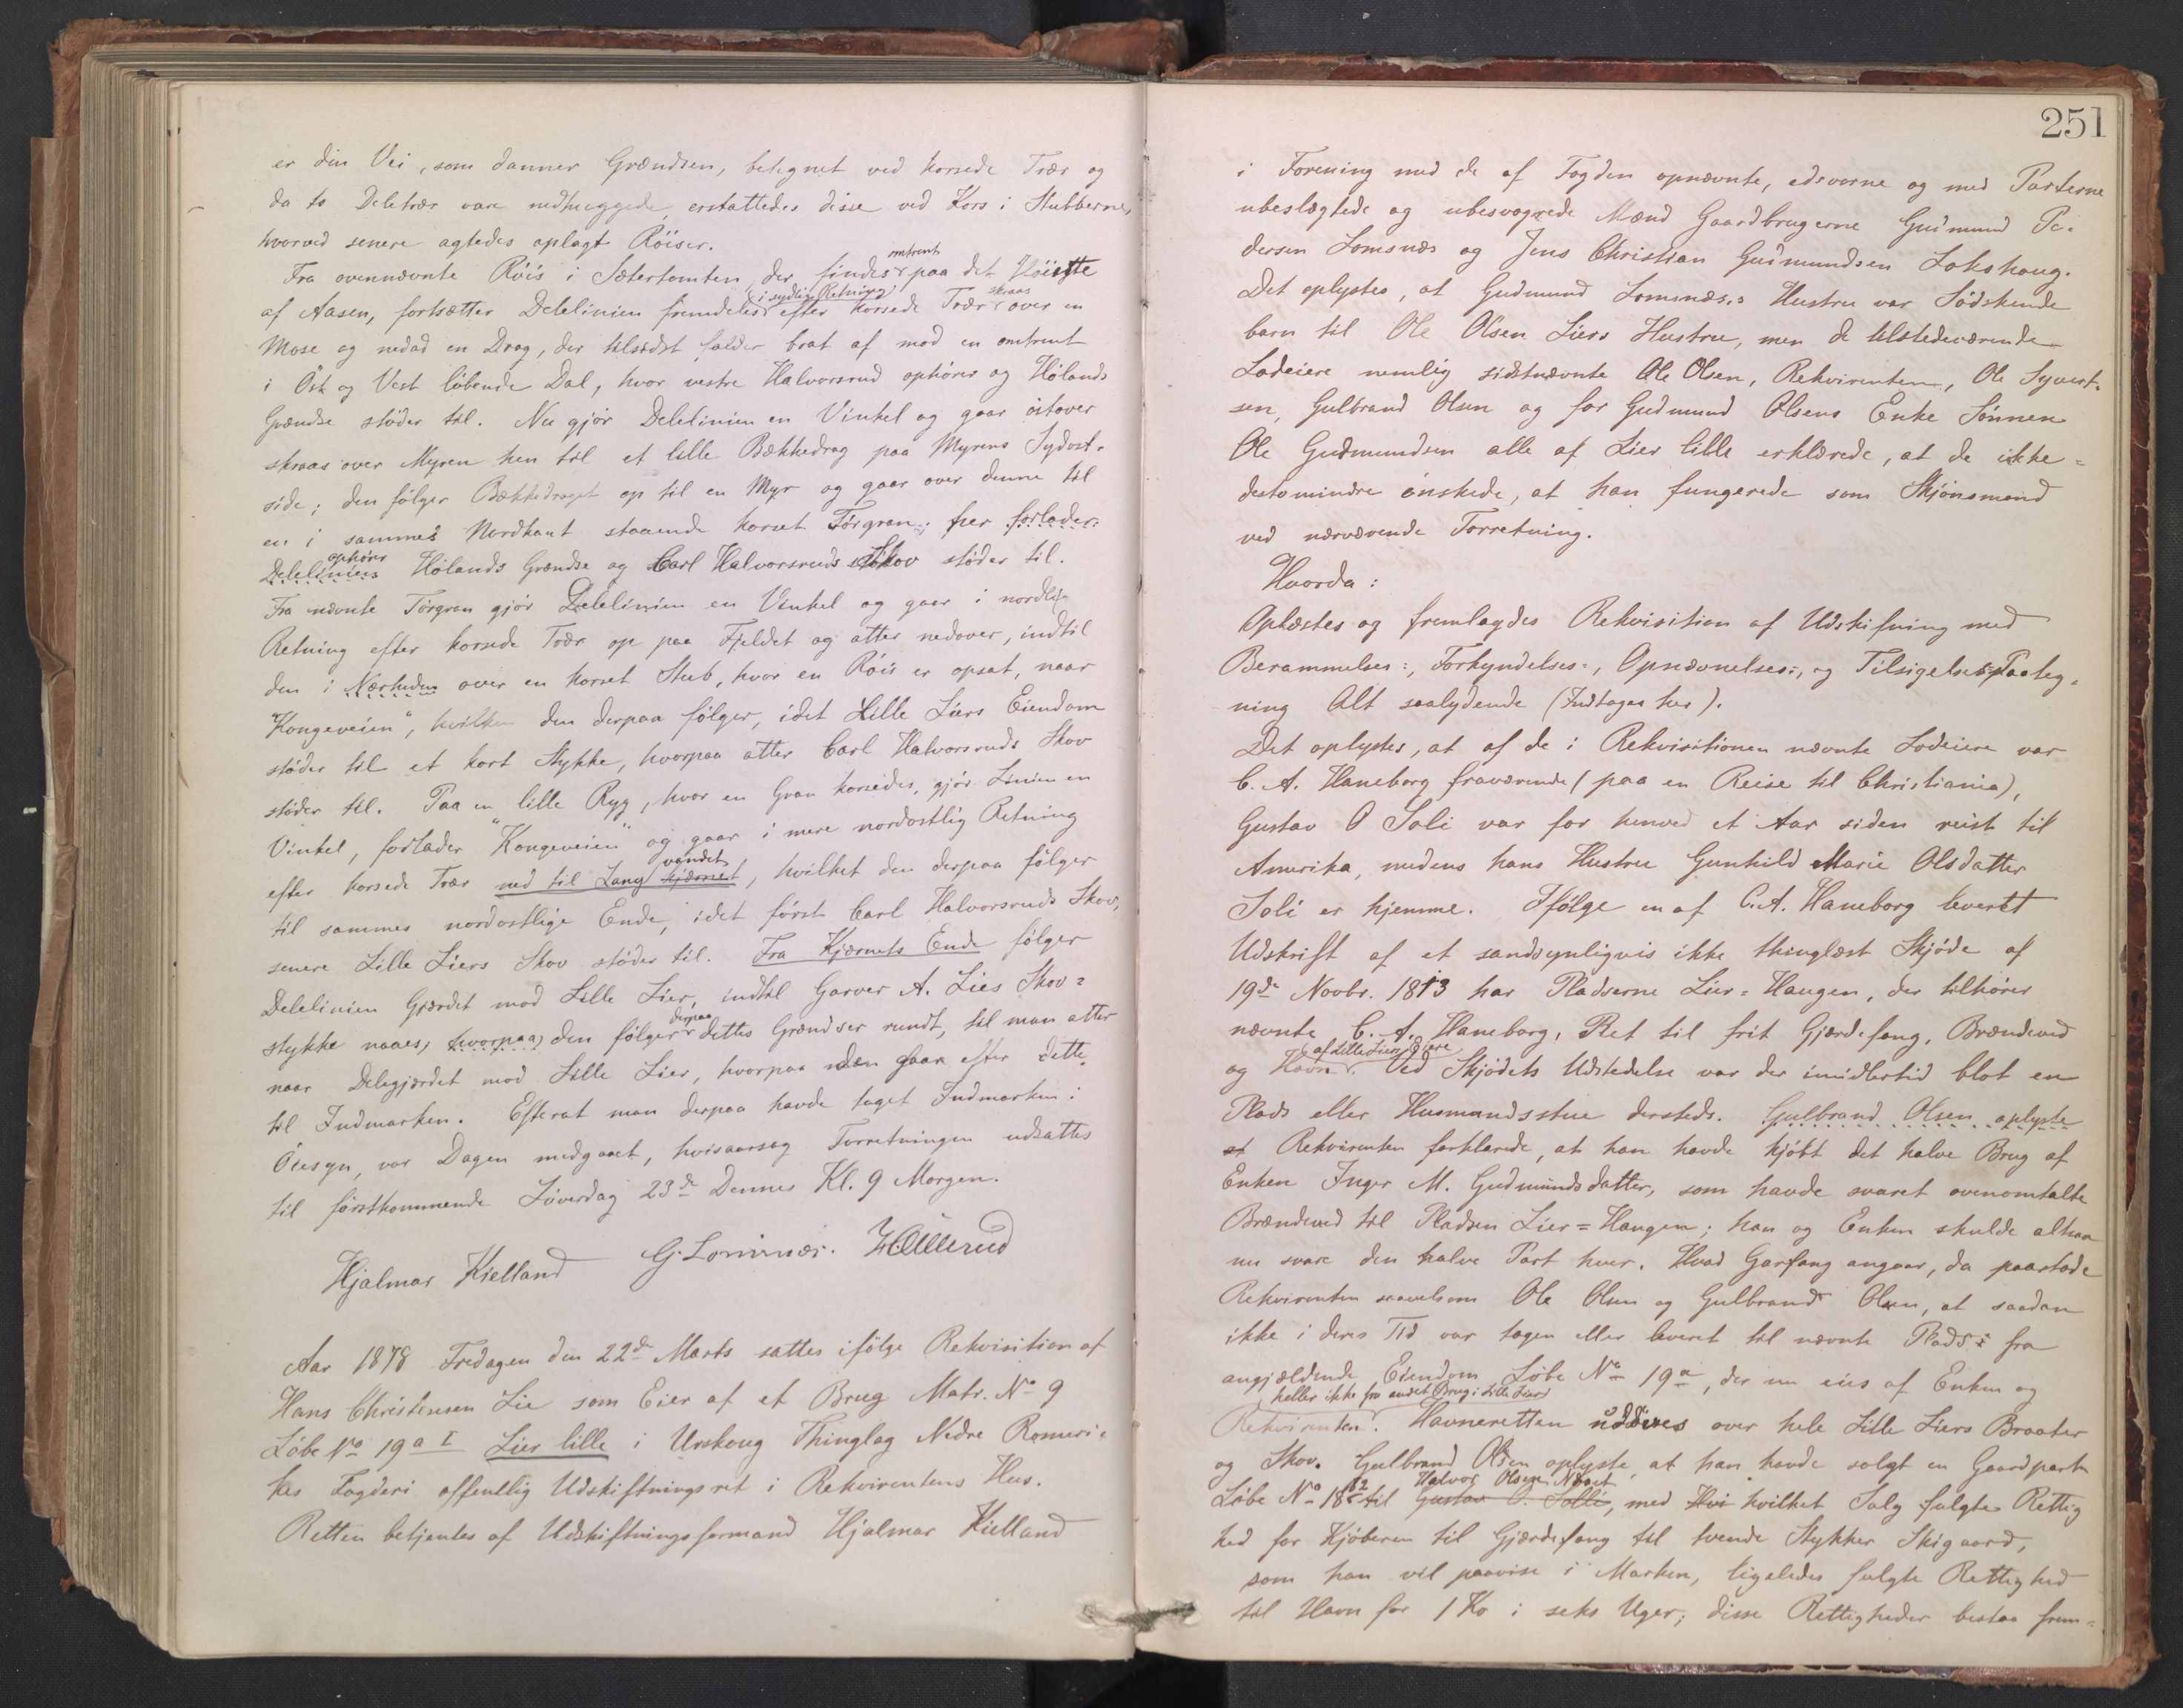 er din Vei, som danner Grændsen, betegnet ved korsede Trær og
da to Deletrær vare nedhuggede, erstattedes disse ved Kors i Stubberne,
hvorved senere agtedes oplagt Röiser.
Fra ovennævnte Röis i Sætertomten, der findes omtrent paa det Höieste
af Aasen, fortsætter Delelinien fremdeles i sydlig Retning efter korsede Trær skraas over en
Mose og nedad en Drog, der tilsidst falder brat af mod en omtrent
i Öst og Vest löbende Dal, hvor vestre Halvorsrud ophörer og Hölands
Grændse stöder til. Nu gjör Delelinien en Vinkel og gaar östover
skraas over Myren hen til et lille Bækkedrag paa Myrens Sydost-
side; den fölger Bækkedraget op til en Myr og gaar over denne til
en i sammes Nordkant staaende korset Törgran; her forlader
Delelinien ophörer Hölands Grændse og Carl Halvorsruds Skov stöder til.
Fra nævnte Törgran gjör Delelinien en Vinkel og gaar i nordlig
Retning efter korsede Trær op paa Fjeldet og atter nedover, indtil
den i Nærheden over en korset Stub, hvor en Röis er opsat, naar
"Kongeveien", hvilken den derpaa fölger, idet Lille Liers Eiendom
stöder til et kort Stykke, hvorpaa atter Carl Halvorsruds Skov
stöder til. Paa en lille Ryg, hvor en Gran korsedes, gjör Linien en
Vinkel, forlader "Kongeveien" og gaar i mere nordostlig Retning
efter korsede Trær ned til Lang kjærnet vandet, hvilket den derpaa fölger
til sammes nordostlige Ende, idet först Carl Halvorsruds Skov,
senere Lille Liers Skov stöder til. Fra Kjærnets Ende fölger
Delelinien Gjærdet mod Lille Lier, indtil Garver A. Lies Skov=
stykke naaes; hvorpaa den fölger derpaa dettes Grændser rundt, til man atter
naar Delegjærdet mod Lille Lier, hvorpaa den gaar efter dette
til Indmarken. Efterat man derpaa havde taget Indmarken i
Öiesyn, var Dagen medgaaet, hvisaarsag Forretningen udsattes
til förstkommende Löverdag 23de Dennes Kl. 9 Morgen.
Hjalmar Kielland G. Lomsnæs.
Aar 1878 Fredagen den 22de Marts sattes ifölge Rekvisition af
Hans Christensen Lie som Eier af et Brug Matr. No 9
Löbe No 19a I Lier lille i Urskoug Thinglag Nedre Romeri=
kes Fogderi offentlig Udskiftningsret i Rekvirentens Hus.
Retten betjentes af Udskiftningsformand Hjalmar Kielland
251
i Forening med de af Fogden opnævnte, edsvorne og med Parterne
ubeslægtede og ubesvogrede Mænd Gaardbrugerne Gudmund Pe-
dersen Lomsnæs og Jens Christian Gudmundsen Lokshaug.
Det oplystes, at Gudmund Lomsnæs's Hustru var Södskende
barn til Ole Olsen Liers Hustru, men de tilstedeværende
Lodeiere nemlig sidstnævnte Ole Olsen, Rekvirenten, Ole Syvert-
sen, Gulbrand Olsen og for Gudmund Olsens Enke Sönnen
Ole Gudmundsen alle af Lier lille erklærede, at de ikke=
destomindre önskede, at han fungerede som Skjönsmand
ved nærværende Forretning.
Hvorda:
Oplæstes og fremlagdes Rekvisition af Udskifning med
Berammelses=, Forkyndelses=, Opnævnelses=, og Tilsigelses=Paateg=
ning Alt saalydende (Indtages her).
Det oplystes, at af de i Rekvisitionen nævnte Lodeiere var
C. A. Haneborg fraværende (paa en Reise til Christiania),
Gustav O Soli var for henved et Aar siden reist til
Amerika, medens hans Hustru Gunhild Marie Olsdatter
Soli er hjemme. Ifölge en af C. A. Haneborg leveret
Udskrift af et sandsynligvis ikke thinglæst Skjöde af
19de Novbr. 1813 har Pladserne Lier=Haugen, der tilhörer
nævnte C. A. Haneborg, Ret til frit Gjærdefang, Brændeved
og Havn af Lille Liers Eiere. Ved Skjödets Udstedelse var der imidlertid blot en
Plads eller Husmandsstue dersteds. Gulbrand Olsen oplyste
at Rekvirenten forklarede, at han havde kjöbt det halve Brug af
Enken Inger M. Gudmundsdatter, som havde svaret ovenomtalte
Brændeved til Pladsen Lier=Haugen; han og Enken skulde altsaa
nu svare den halve Part hver. Hvad Garfang angaar, da paastode
Rekvirenten saavelsom Ole Olsen og Gulbrand Olsen, at saadan
ikke i deres Tid var tagen eller leveret til nævnte Plads fra
angjældende Eiendom Löbe No 19a, der nu eies af Enken og
Rekvirenten heller ikke fra andet Brug i Lille Lier. Havneretten udöves over hele Lille Liers Braater
og Skov. Gulbrand Olsen oplyste, at han havde solgt en Gaardpart
Löbe No 18 til Gustav O. Solli Halvor Olsen, med hvilket Salg fulgte Rettig
hed for Kjöberen til Gjærdefang til tvende Stykker Skigaard,
som han vil paavise i Marken, ligeledes fulgte Rettighed
til Havn for 1 Ko i seks Uger; disse Rettigheder bestaa frem=